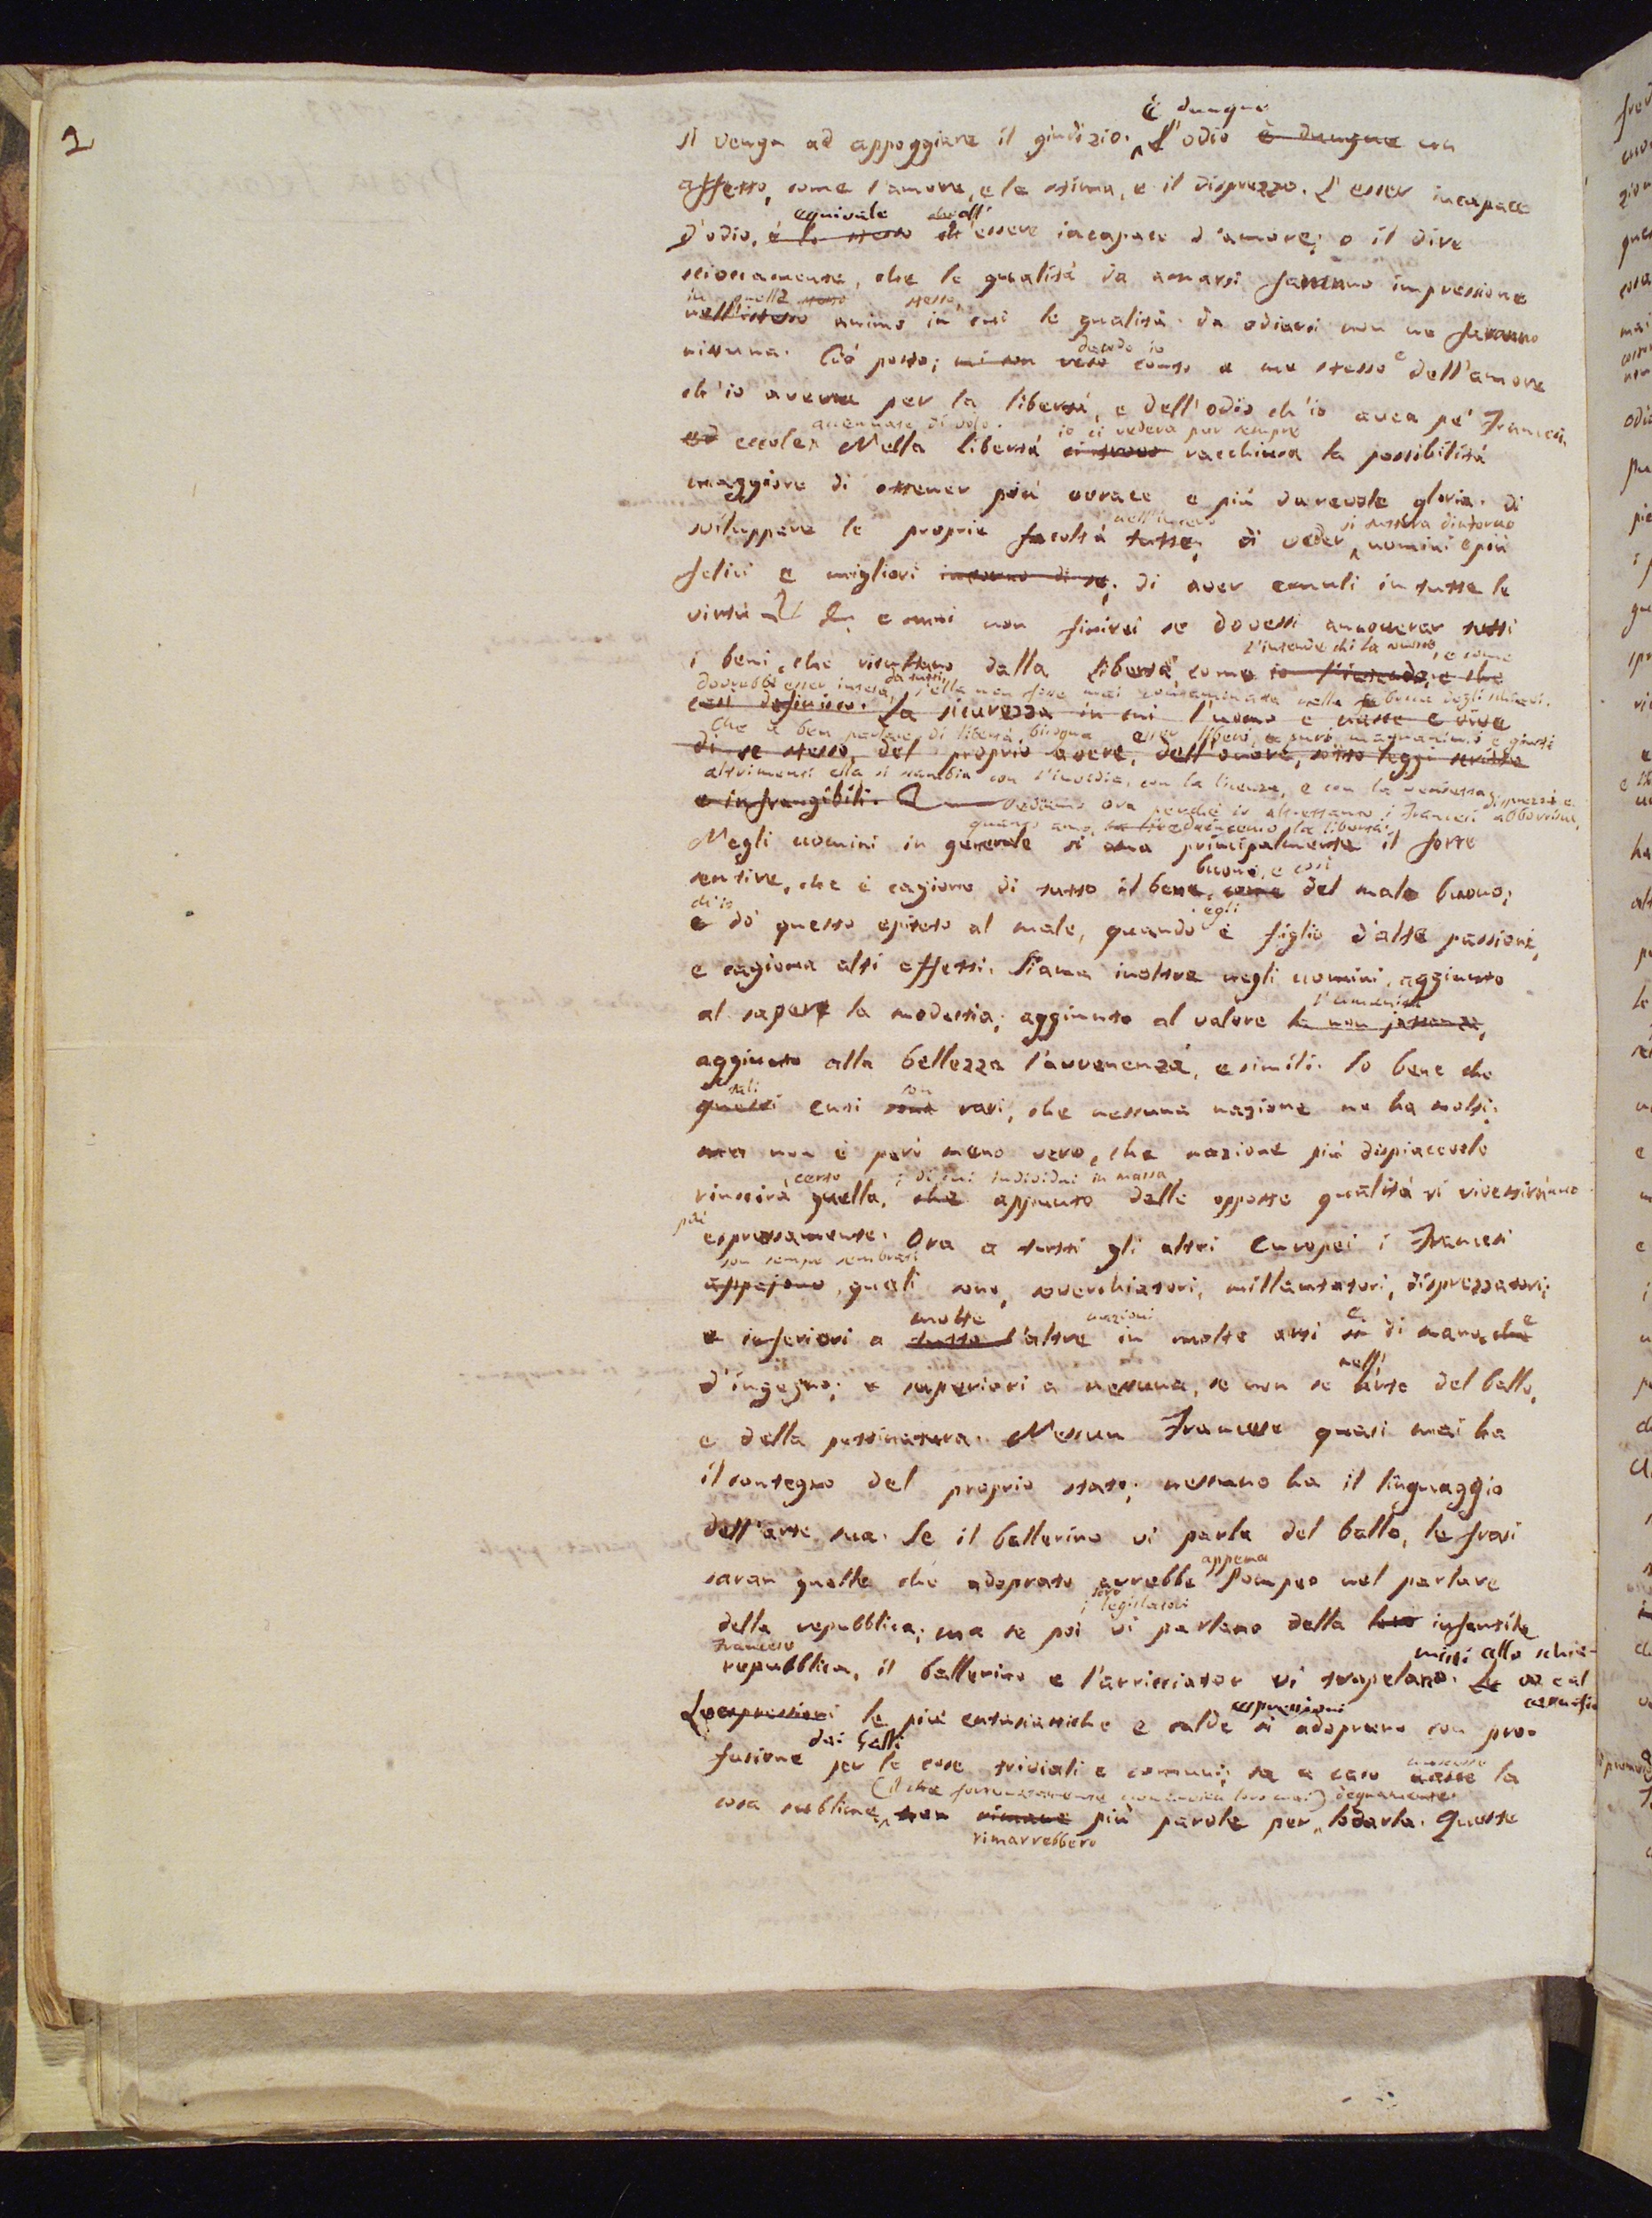 2
È dunque
si venga ad appoggiare il giudizio. L'odio è dunque un
affetto, come l'amore, e la stima, e il disprezzo. L'esser incapace
equivale all'
d'odio, è lo stesso ch'essere incapace d'amore; o il dire
scioccamente, che le qualità da amarsi faranno impressione
in quello stesso stesso,
nell'istesso animo in cui le qualità da odiarsi non ne faranno
dando io
nissuna. Ciò posto; mi son reso conto a me stesso e dell'amore
ch'io aveva per la libertà, e dell'odio ch'io avea pe' Francesi,
accennate di volo. io ci vedeva pur sempre
ed eccole. Nella libertà ci trovo racchiusa la possibilità
maggiore di ottener più verace e più durevole gloria. di
nell'intero si tuttora dintorno
sviluppare le proprie facoltà tutte; di veder uomini e più
felici e migliori intorno di se; di aver emuli in tutte le
virtù & e omai non finirei se dovessi annoverar tutti
l'intende chi la merta, e come
i beni, che risultano dalla libertà, come io l'intendo, e che
dovrebbe esser intesa, da tutti, s'ella non fosse mai contaminata nella bocca degli schiavi.
così definisco. La sicurezza in cui l'uomo e nasce e vive
Che a ben parlare di libertà, bisogna esser liberi, e puri, magnanimi e giusti
di se stesso, del proprio avere, dell'onore, sotto leggi scritte
altrimenti ella si scambia con l'invidia, con la licenza, e con la vendetta.
e infrangibili. Vediamo ora perché io altrettanto i Francesi disprezzi e abborrisca,
quanto amo, la libertà.
Negli uomini in generale si ama principalmente il forte
buono, e così
sentire, che è cagione di tutto il bene, come del male buono;
egli
e dò questo epiteto al male, quando è figlio d'alte passioni,
e cagiona alti effetti. S'ama inoltre negli uomini, aggiunto
l'umanità
al sapere la modestia; aggiunto al valore la non jattanza,
aggiunto alla bellezza l'avvenenza, e simili. So bene che
tali son
questi enti sono rari, che nessuna nazione ne ha molti;
ma non è però meno vero, che nazione più dispiacevole
certo ; di cui individui in massa
riuscirà quella, che appunto delle opposte qualità si vivestiranno
più
espressamente. Ora a tutti gli altri Europei i Francesi
son sempre sembrati
appajono, quali sono, soverchiatori, millantatori, disprezzatori;
molte nazioni e
e inferiori a tutte l'altre in molte arti sì di mano, che
nell'
d'ingegno; e superiori a nessuna, se non se l'arte del ballo,
e della pettinatura. Nessun Francese quasi mai ha
il contegno del proprio stato; nessuno ha il linguaggio
dell'arte sua. Se il ballerino vi parla del ballo, le frasi
appena
saran quelle che adoprate avrebbe Pompeo nel parlare
i loro legislatori
della repubblica; ma se poi vi parlano della loro infantile
Francese misti allo schia-
repubblica, il ballerino e l'arricciator vi trapelano. Le
vo e al carnefice
espressioni
Le espressioni le più entusiastiche e calde si adoprano con pro-
dai Galli
fusione per le cose triviali e comuni; se a caso nasce la
(il che fortunatamente non avvien loro mai) degnamente
cosa sublime, non rimane più parole per lodarla. Queste
rimarrebbero